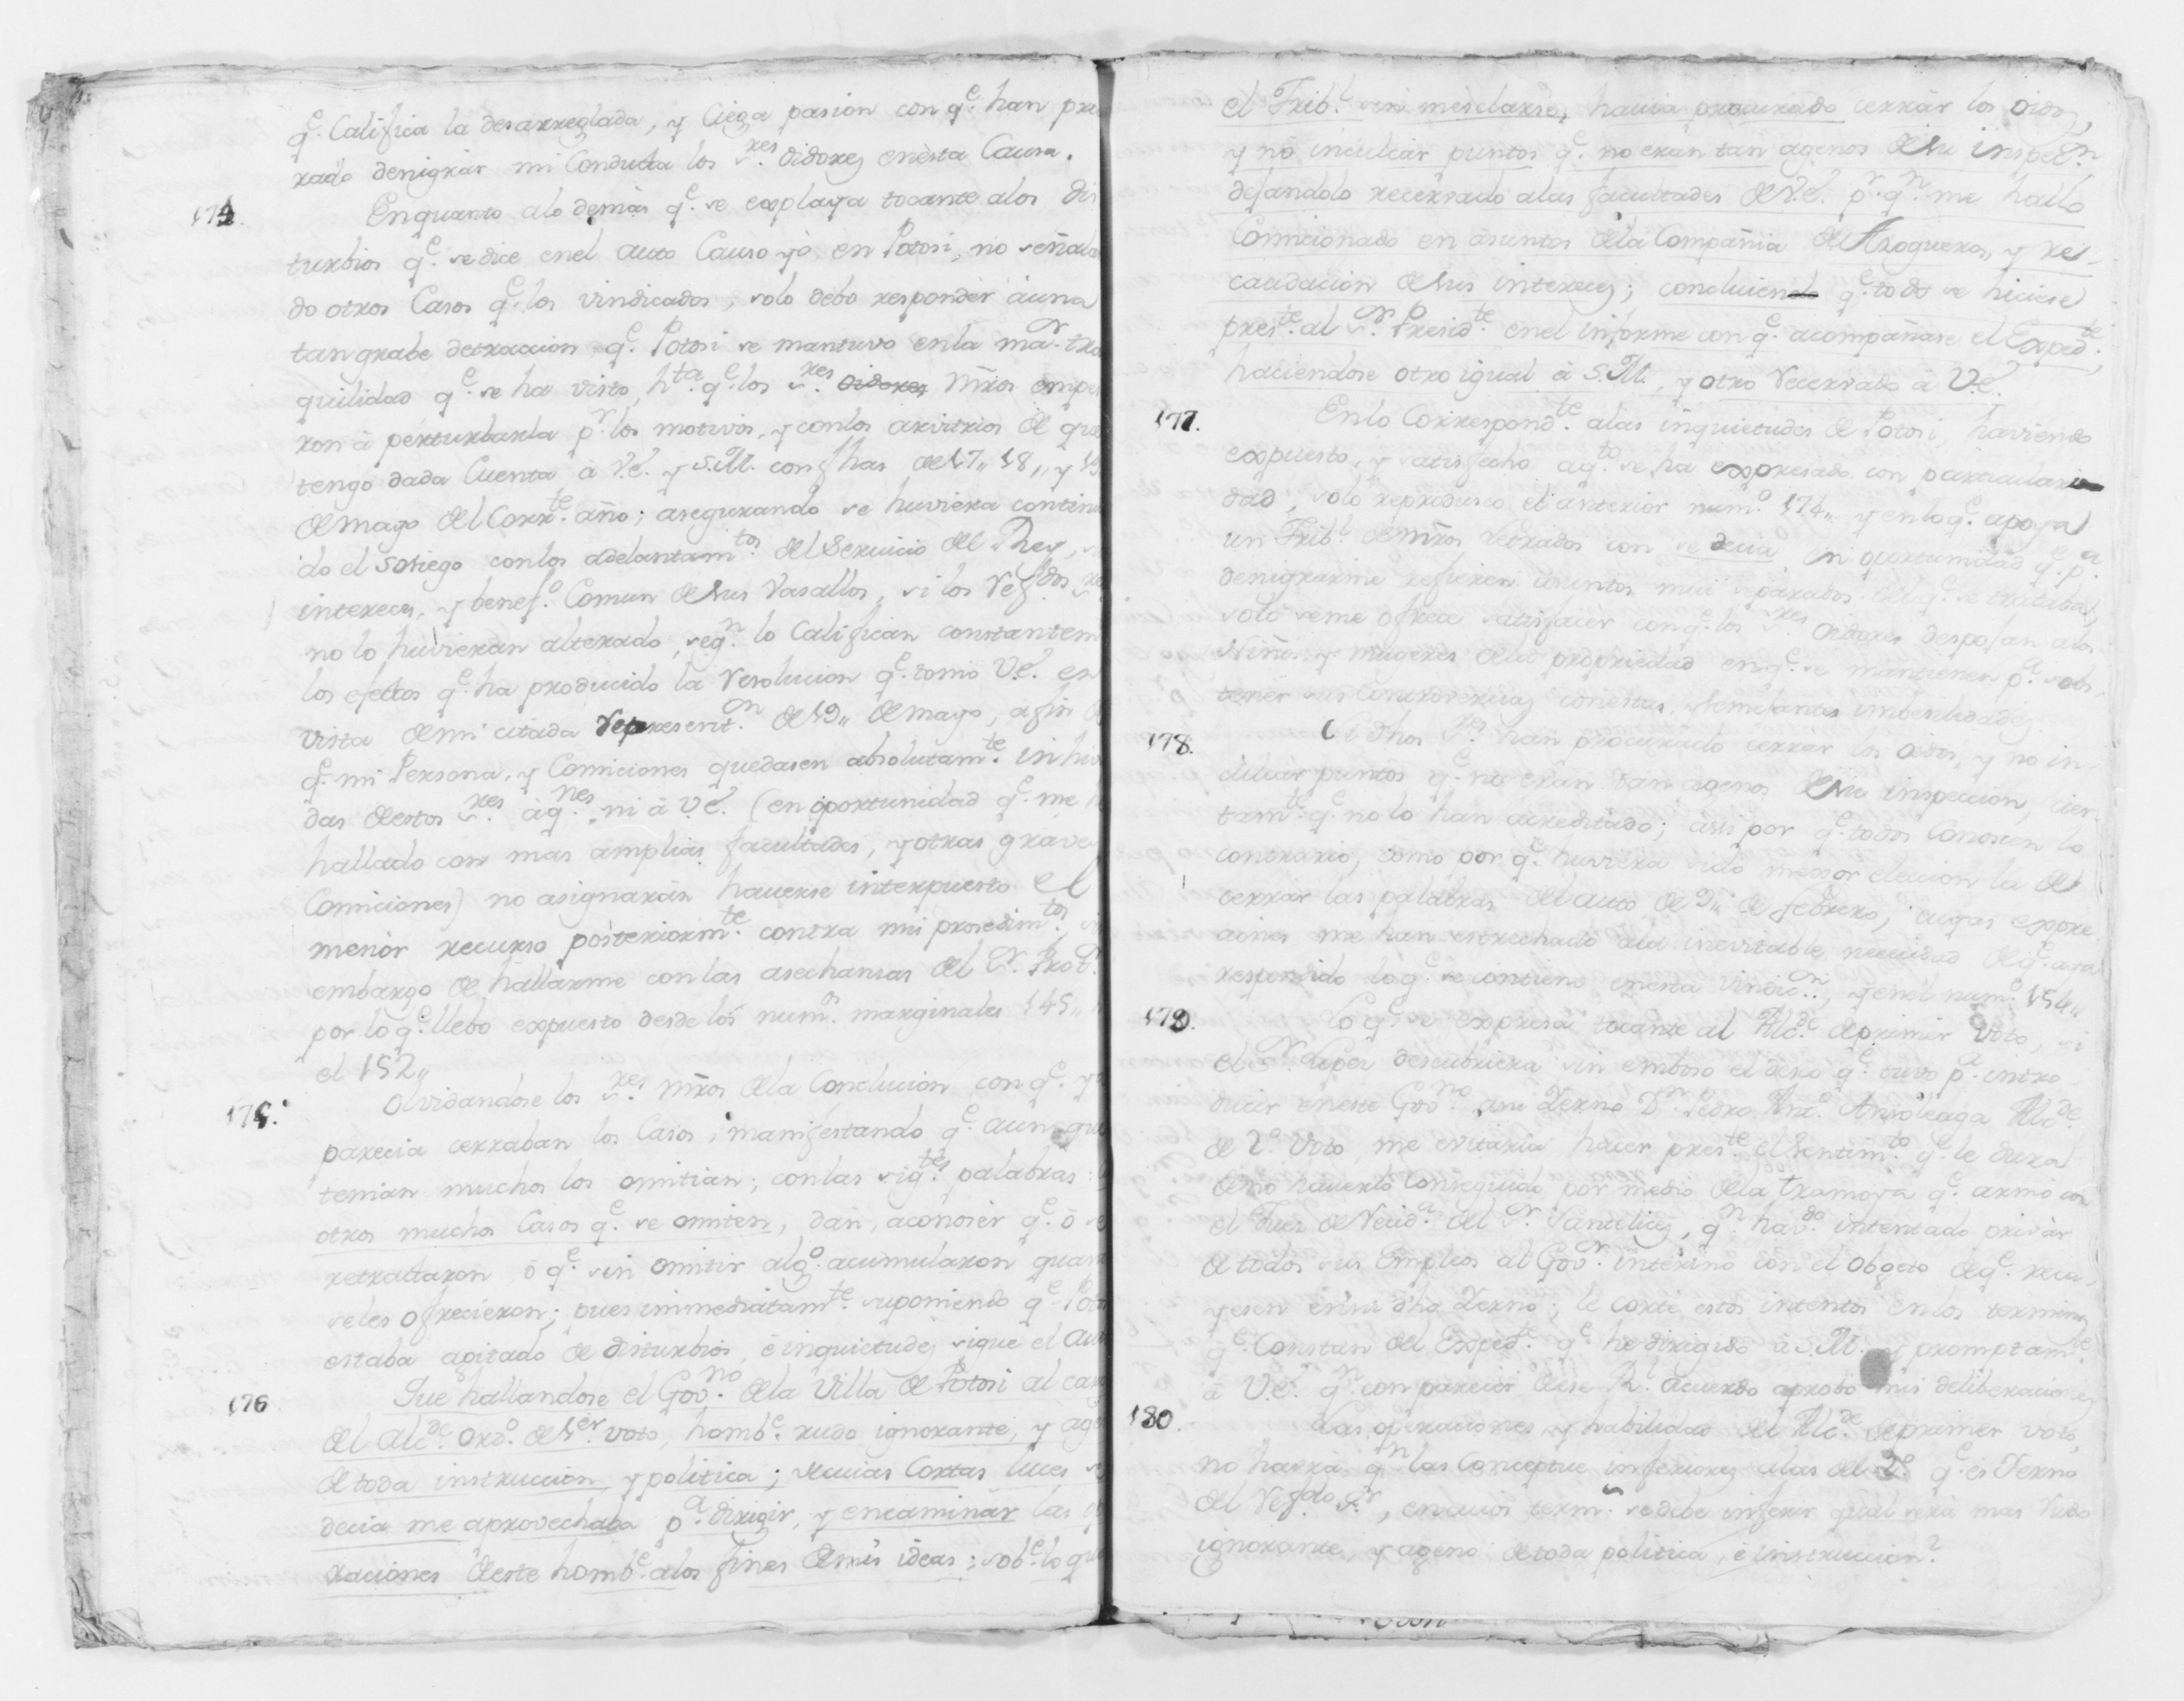 q.e Califica la desarreglada, y Ciega pasion con q.e han pro
rado denigrar mi Conducta los S.res Oidores enesta Causa.
174. Enquanto alo demàs q.e se explaya tocante alos dis
turbios q.e se dice enel auto Causo yò en Potosi, no señala
do otros Casos q.e los vindicados, solo debo responder àuna
tan grabe detraccion q.e Potosi se mantuvo enla ma.r tra
quilidad q.e se ha visto, h.ta q.e los S.res Oidores Mñros empe
ron à perturbarla p.r los motivos, y conlos arvitrios de que
tengo dada Cuenta à V.E. y S.M. con fhas de 17,, 18,, y 19
de mayo del Corr.te año; asegurando se huviera contin
do el sosiego conlos adelantam.tos del Servicio del Rey,
intereces, y benef.o Comun de sus Vasallos, si los Ref.dos
no lo huvieran alterado, seg.n lo Califican constantem
los efectos q.e ha producido la Resolucion q.e tomo V.E. en
vista de mi citada Represent.on de 19,, de mayo, afin
q.e mi Persona, y Comiciones quedasen absolutam.te inhiv
das de estos S.res àq.nes ni à V.E. (en oportunidad q.e me
hallado con mas amplias facultades, y otras graves
Comiciones) no asignaràn haverse interpuesto el
menòr recurso posteriorm.te contra mis prosedim.tos,
embargo de hallarme conlas asechansas del S.r Prot.r
por lo q.e llebo expuesto desde los num.s marginales 145,,
el 152,,
175. Olvidandose los S.res Mñros dela Conclucion con q.e
parecia cerraban los Casos, manifestando q.e aun que
tenian muchos los omitian; conlas sig.tes palabras:
otros muchos Casos q.e se omiten, dàn, aconoser q.e ò se
retractaron, ò q.e sin omitir alg.o acumularon quan
seles ofrecieron; pues inmediatam.te suponiendo q.e Poto
estaba agitado de disturbios, è inquietudes sigue el Au
176 Que hallandose el Gov.no dela Villa de Potosi al car
del Alc.de Ord.o de 1.er voto, homb.e rudo ignorante, y age
de toda instruccion, y politica; de cuias Cortas luces se
decia me aprovechaba p.a dirigir, y encaminàr las o
raciones de este homb.e alos fines de mis ideas; sob.e lo que
el Trib.l sin mesclarse, havia procurado cerràr los oidos,
y nò inculcàr puntos q.e no eran tan agenos de su inspec.n
dejandolo recervado alas facultades de V.E. p.r q.n me hallo
Comicionado en asuntos dela Compañia de Azogueros, y re-
caudacion de sus intereces; concluiendo q.e todo se hiciese
pres.te al S.r Presid.te enel informe con q.e acompañase el Exped.te,
haciendose otro igual à S.M., y otro recervado à V.E.
177. Enlo Correspond.te alas inquietudes de Potosi, haviendo
expuesto, y satisfecho aq.to se ha expresado con particulari
dad, solo reprodusco el anterior num.o 174,, y enlo q.e apoya
un Trib.l de Mñros Letrados con se decia en oportunidad q.e p.a
denigrarme refieren asuntos mui separados del q.e se trataba,
solo seme ofrece satisfacer conq.e los S.res Oidores despojan alos
Niños, y mugeres dela propriedad enq.e se mantienen p.a sos-
tener sus Controvercias conestas, semejantes imbesilidades.
178. Si dhos S.res han procurado cerrar los oidos, y no in-
culcar puntos q.e no eran tan agenos de su inspeccion, cier-
tam.te q.e no lo han acreditado; assi por q.e todos Conosen lo
contrario, como por q.e huviera sido mejor eleccion la de
cerrar las palabras del auto de 9,, de febrero, cuyas expre
ciones me han estrechado ala inevitable necesidad deq.e aya
respondido loq.e se contiene enesta vindic.n, y enel num.o 154,,
179. Lo q.e se expresa tocante al Alc.de de primer Voto, si
el S.r Lopez descubriera sin emboso el deseo q.e tuvo p.a intro-
ducir eneste Gov.no asu Yerno D.n Pedro Ant.o Ansoleaga Alc.de
de 2.o Voto, me evitaria hacer pres.te el sentim.to q.e le dura
de no haverlo Conseguido por medio dela tramoya q.e armò con
el Juez de Recid.a del S.r Santelices, q.n hav.do intentado privàr
de todos sus Empleos al Gov.r interino con el objeto deq.e reca-
yesen ensu dho Yerno; le corte estos intentos enlos terminos
q.e Constan del Exped.te q.e he dirigido à S.M. y promptam.te
à V.E. q.n con parecer de ese R.l acuerdo aprobò mis deliberaciones
180. Las operaciones, y habilidad del Alc.de de primer voto,
no havrà q.n las Conceptue inferiores alas del 2.o q.e es Yerno
del Ref.do S.r, encuios term.s se debe inferir qual serà mas Rudo
ignorante, y ageno de toda politica, è instruccion?